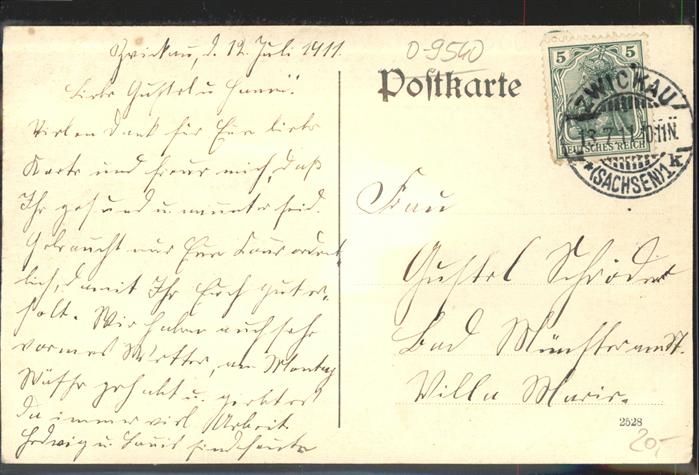 Zwickau, d. 12. Juli 1911.
Liebe Gustel u. Hanni!
Vielen Dank für Eure liebe
Karte und freue mich, daß
Ihr gesund u. munter seid.
Gebraucht nur Eure Kur ordent-
lich, damit Ihr Euch gut er-
holt. Wir haben auch sehr
warmes Wetter, am Montag
Wäsche gehabt u. giebt es
da immer viel Arbeit
Hedwig u. sind heute
0-9540
Postkarte
5 5
DEUTSCHES REICH
ZWICKAU
13.7.11.10-11N.
*(SACHSEN)1k
Frau
Gustel Schröder
Bad Münster am St.
Villa Marie.
2528
20,-